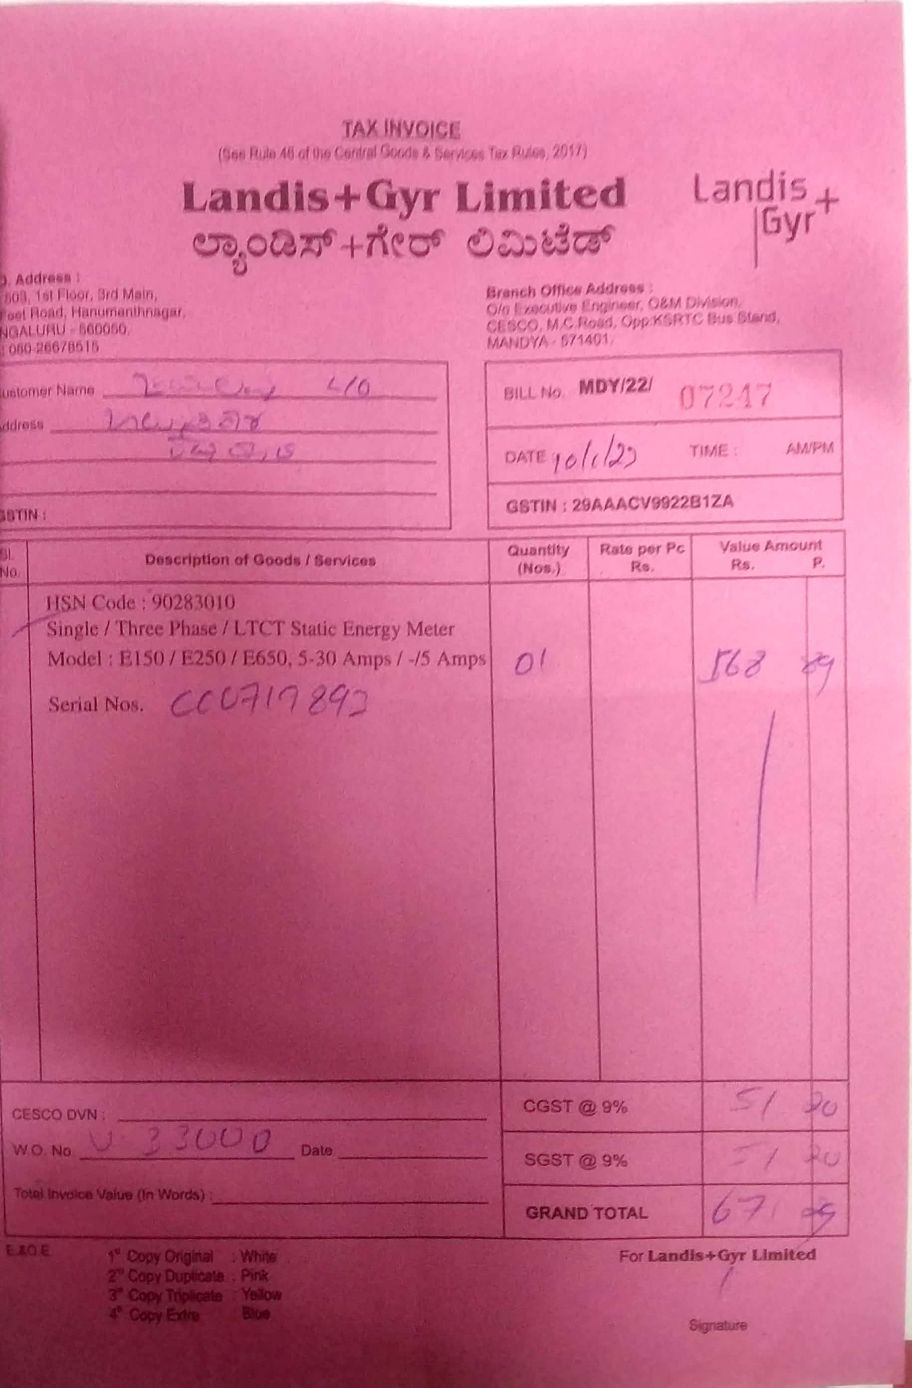 TAX INVOICE
(See Rule 46 of the Central Goods & Services Tax Rules, 2017)
Landis+Gyr Limited
ಲ್ಯಾಂಡಿಸ್+ಗೇರ್ ಲಿಮಿಟೆಡ್
Landis+
Gyr
. Address :
503, 1st Floor, 3rd Main,
eet Road, Hanumanthnagar,
NGALURU - 560050
: 080-26678515
Branch Office Address :
O/o Executive Engineer, O&M Division,
CESCO, M.C.Road, Opp:KSRTC Bus Stand,
MANDYA - 571401.
ustomer Name
ddress
GSTIN :
BILL No. MDY/22/ 07247
DATE 10/1/23 TIME : AM/PM
GSTIN : 29AAACV9922B1ZA
Sl. No. Description of Goods / Services Quantity (Nos.) Rate per Pc Rs. Value Amount Rs. P.
HSN Code : 90283010
Single / Three Phase / LTCT Static Energy Meter
Model : E150 / E250 / E650, 5-30 Amps / -/5 Amps 01 568 89
Serial Nos.
CESCO DVN : CGST @ 9% 51 20
W.O. No. Date
SGST @ 9% 51 20
Total Invoice Value (In Words) :
GRAND TOTAL 671 29
E.&O.E.
1st Copy Original : White
2nd Copy Duplicate : Pink
3rd Copy Triplicate : Yellow
4th Copy Extra Blue
For Landis+Gyr Limited
Signature